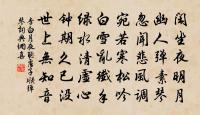 閑坐夜明月
幽人彈素琴
忽聞悲風調
宛若寒松吟
白雪亂纖手
綠水清虛心
鍾期久已沒
世上無知音
李白月夜聽盧子順彈
琴